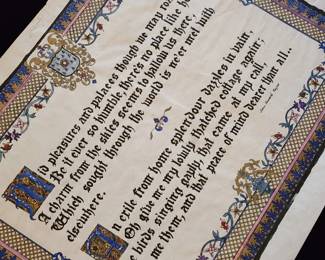 Mid pleasures and palaces though we may roa
Be it ever so humble, there's no place like ho
A charm from the skies seems to hallow us there,
Which sought through the world is ne'er met with
elsewhere.
An exile from home splendour dazzles in vain,
Oh give me my lowly thatched cottage again;
e birds singing gayly, that came at my call,
me them, and that peace of mind dearer than all..